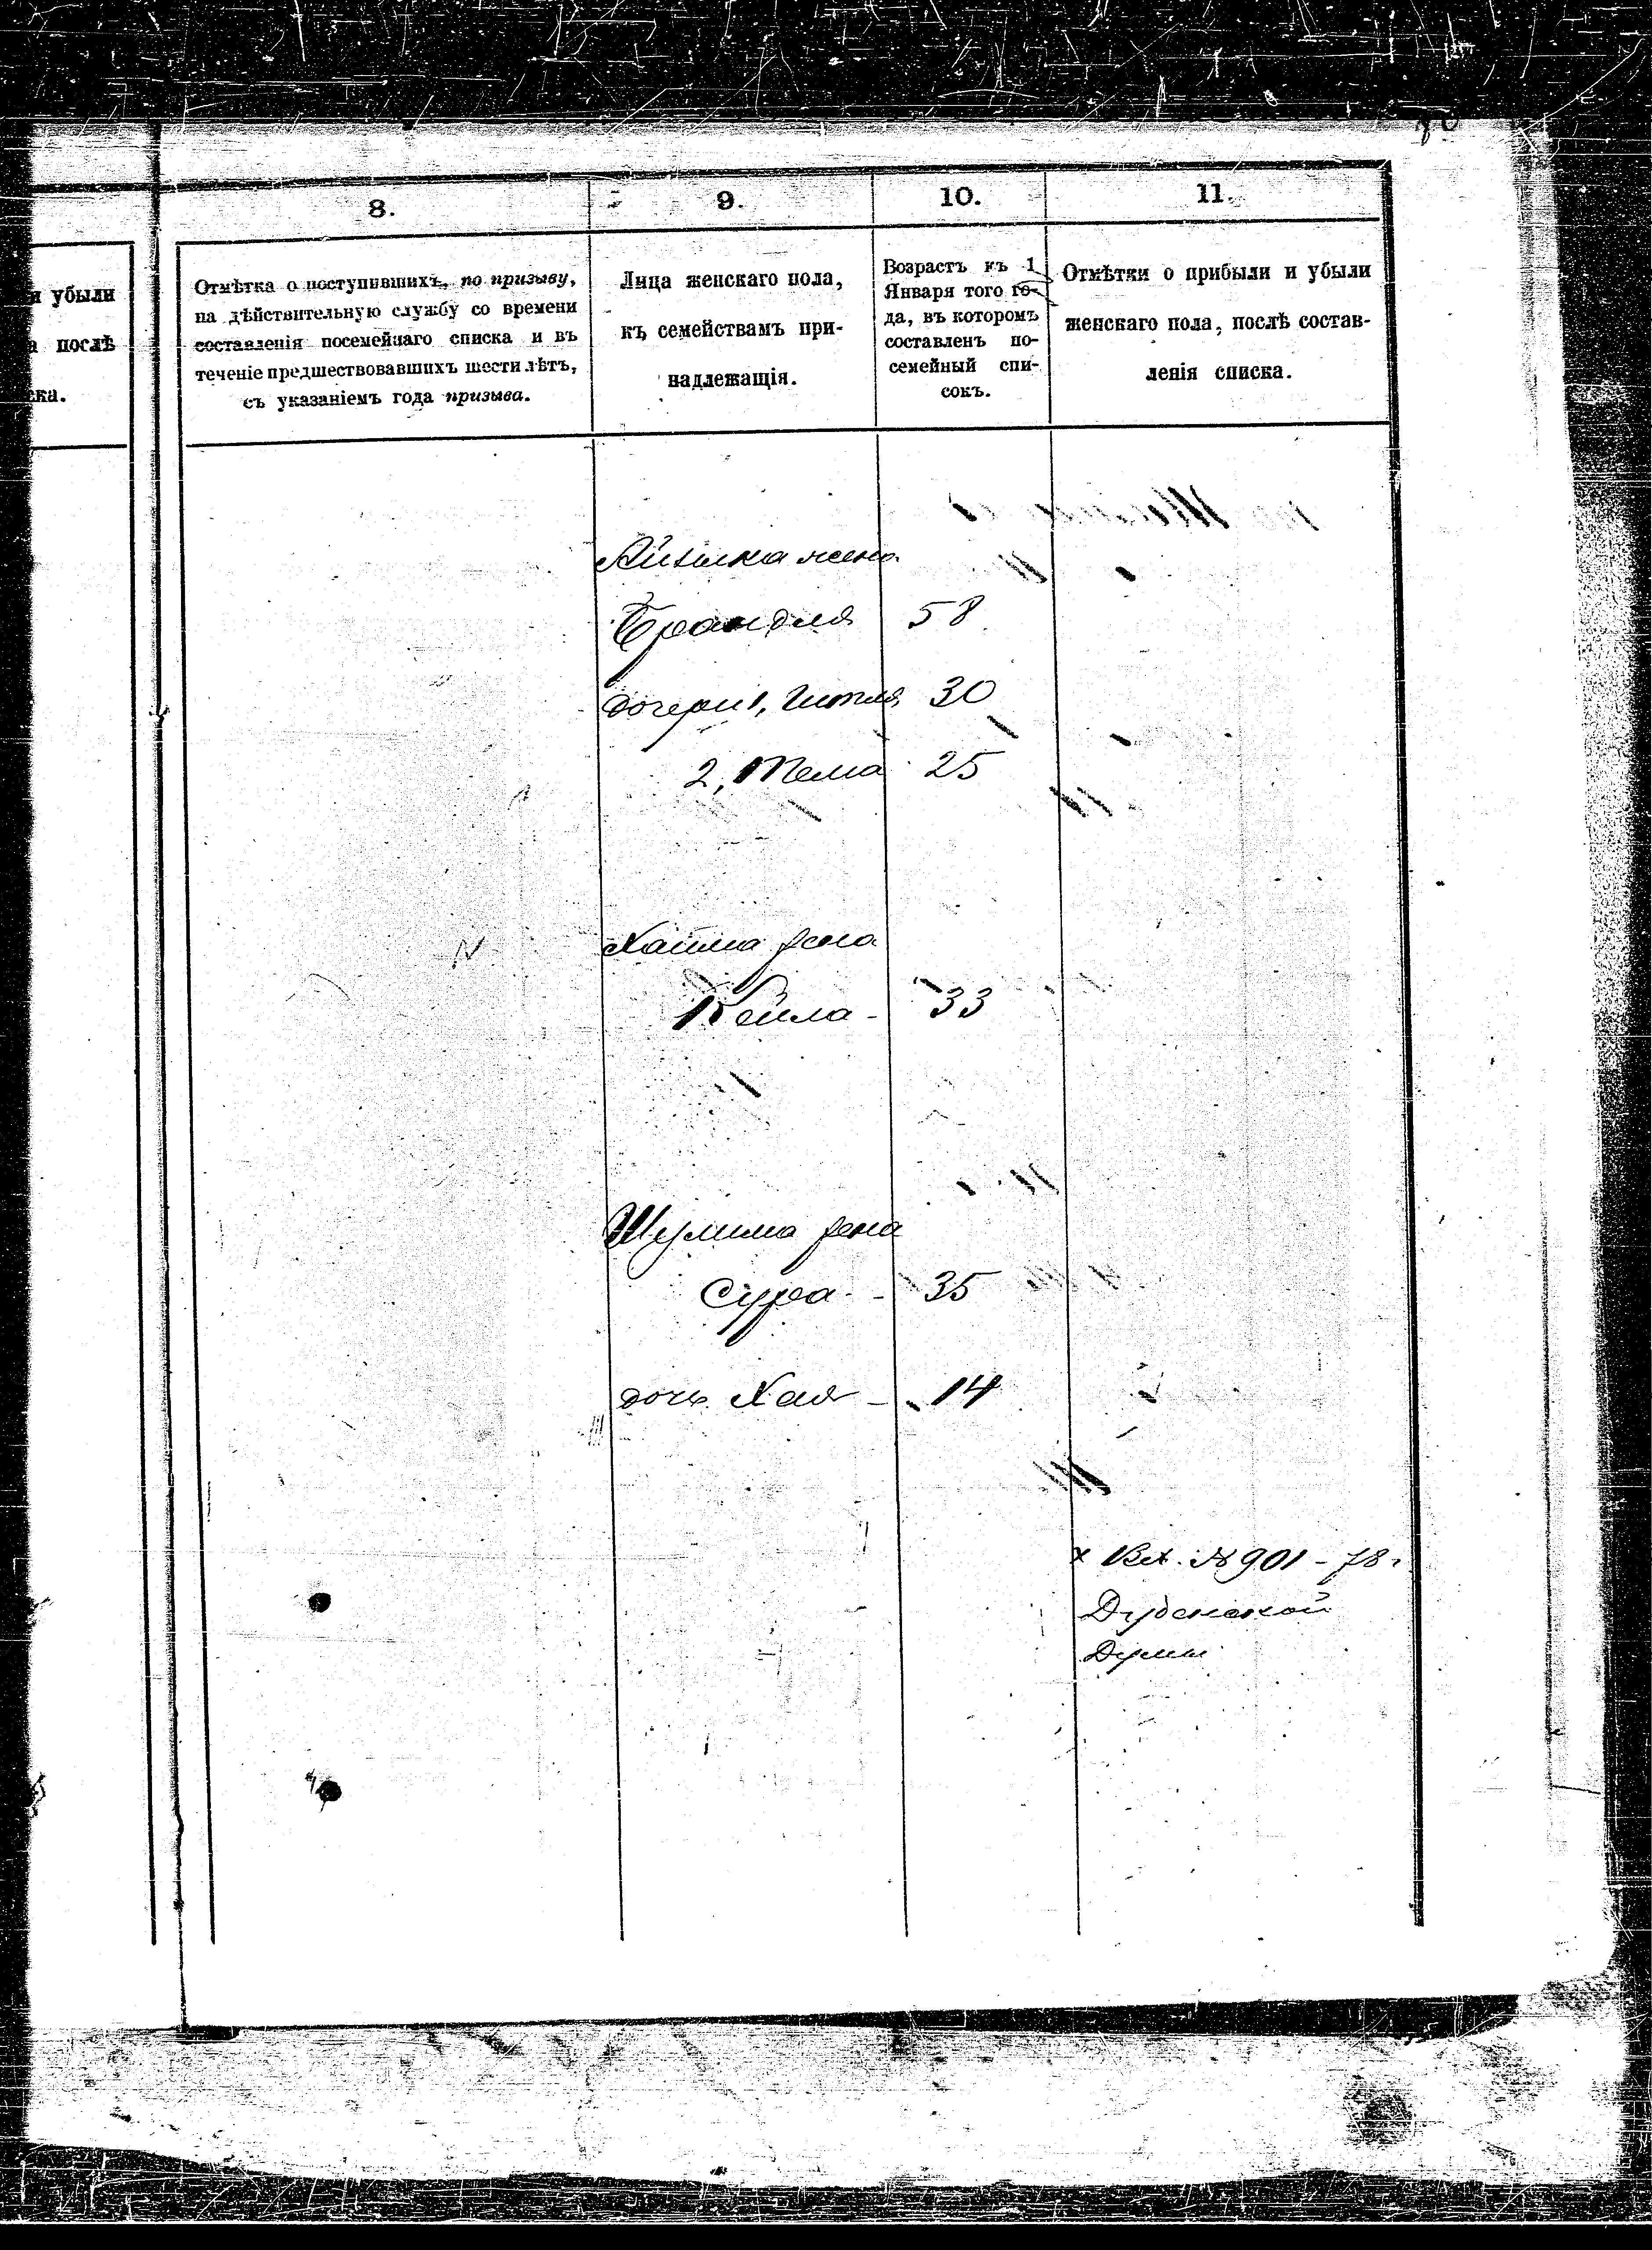 8.
9.
10.
11.
я убыли
а послѣ
ска.
Отмѣтка о поступившихъ, по призыву,
на дѣйствительную службу со времени
составленія посемейнаго списка и въ
теченіе предшествовавшихъ шести лѣтъ,
съ указаніемъ года призыва.
Лица женскаго пола,
къ семействамъ при-
надлежащія.
Возрастъ къ 1
Января того го-
да, въ которомъ
составленъ по-
семейный спи-
сокъ.
Отмѣтки о прибыли и убыли
женскаго пола, послѣ состав-
ленія списка.
жена
Брандля 58
дочери 1, Гитля 30
2, Тема 25
Хаима жена
Кейла - 33
Шулима жена
Сура - 35
дочь Хая - 14
х Вх. № 901 - 78 г
Дубенской
Думы